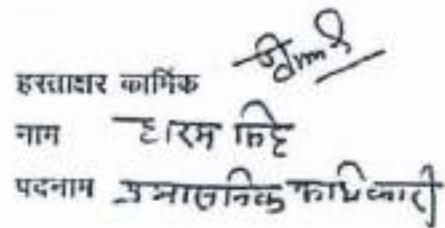 हस्ताक्षर कार्मिक
नाम सिंह
पदनाम प्रशासनिक अधिकारी